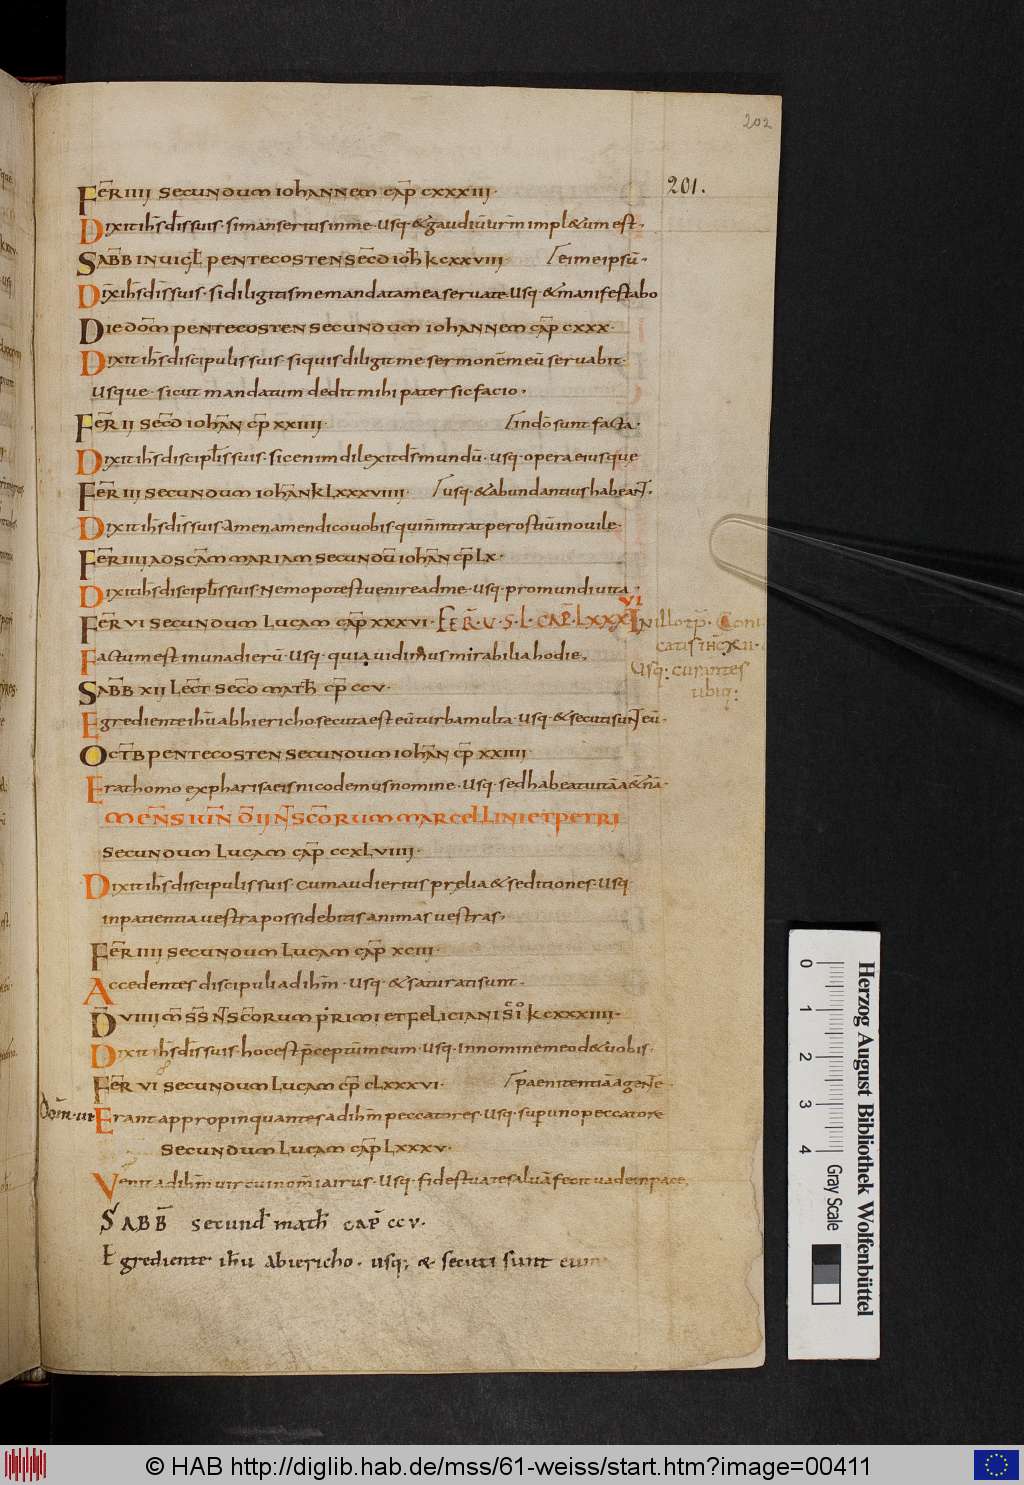 202
201.
FER̄ IIII SECUNDUM IOHANNEM CAP̄ CXXXIII·
Dixit ih̄s discis suis· si manseritis in me· usq· & gaudiū ur̄m impl&um est·
SABB̄ IN UIGL̄ PENTECOSTEN SECD̄ IOH̄ KCXXVIII
ei meipsū·
Dix̄ ih̄s dis suis· si diligitis me mandata mea seruate usq· & manifestabo
DIE DOM̄ PENTECOSTEN SECUNDUM IOHANNEM CAP̄ CXXX·
Dixit ih̄s discipulis suis· siquis diligit me sermonē meū seruabit·
usque· sicut mandatum dedit mihi pater sic facio·
FER̄ II SECD̄ IOHAN̄ CP̄ XXIIII·
in dō sunt facta·
Dixit ih̄s discipl̄is suis· sic enim dilexit dś mundū· usq· opera eiusque
FER̄ III SECUNDUM IOHAN̄ KLXXXVIIII·
usq· & abundantius habeant·
Dixit ih̄s dis suis Amen amen dico uobis qui n̄ intrat per ostiū in ouile·
FER̄ IIII AD SCĀM MARIAM SECUNDŪ IOHAN̄ CP̄ LX·
Dixit ih̄s discipl̄is suis Nemo potest uenire ad me· usq· pro mundi uita·
FER̄ VI SECUNDUM LUCAM CAP̄ XXXVI· FER̄·V·S·L·CAP̄·LXXXVI
In illo tp̄r· Conuocatis ih̄c xii·
Usq: curantes
ubiq:
Factum est in una dierū· usq· quia uidimus mirabilia hodie·
SABB̄ XII LECT̄ SECD̄ MATH̄ CP̄ CCV·
Egrediente ih̄u ab hiericho secuta est eū turba multa· usq· & secuti sunt eū·
OCTB̄ PENTECOSTEN SECUNDUM IOHAN̄ CP̄ XXIIII·
Erat homo ex pharisaeis nicodemus nomine· usq· sed habeat uitā a&nā·
MENS̄ IUN̄ D̄ II N̄ SCŌRUM MARCELLINI ET PETRI
SECUNDUM LUCAM CAP̄ CCXLVIIII·
Dixit ih̄s discipulis suis cum audieritis prelia & seditiones· usq
in patientia uestra possidebitis animas uestras·
FER̄ IIII SECUNDUM LUCAM CAP̄ XCIII·
Accedentes discipuli ad ih̄m· usq· & saturati sunt·
D̄ VIIII M̄ S̄S̄ N̄ SCŌRUM PRIMI ET FELICIANI KCXXXIIII·
Dixit ih̄s dis suis· hoc est pceptū meum· usq· in nomine meo d& uobis·
FER̄ VI SECUNDUM LUCAM CP̄ CLXXXVI·
paenitentiā agente·
Dom̄·III· Erant appropinquantes ad ih̄m peccatores· usq· sup uno peccatore
SECUNDUM LUCAM CAP̄ LXXXV·
Venit ad ih̄m uir cui nom̄ iairus· usq· fides tua te saluā fecit uade in pace·
SABB̄ secund̄ math̄ CAP̄ CCV·
Egrediente ih̄u abiericho· usq; & secuti sunt eum
Herzog August Bibliothek Wolfenbüttel
0 1 2 3 4 Gray Scale
© HAB http://diglib.hab.de/mss/61-weiss/start.htm?image=00411